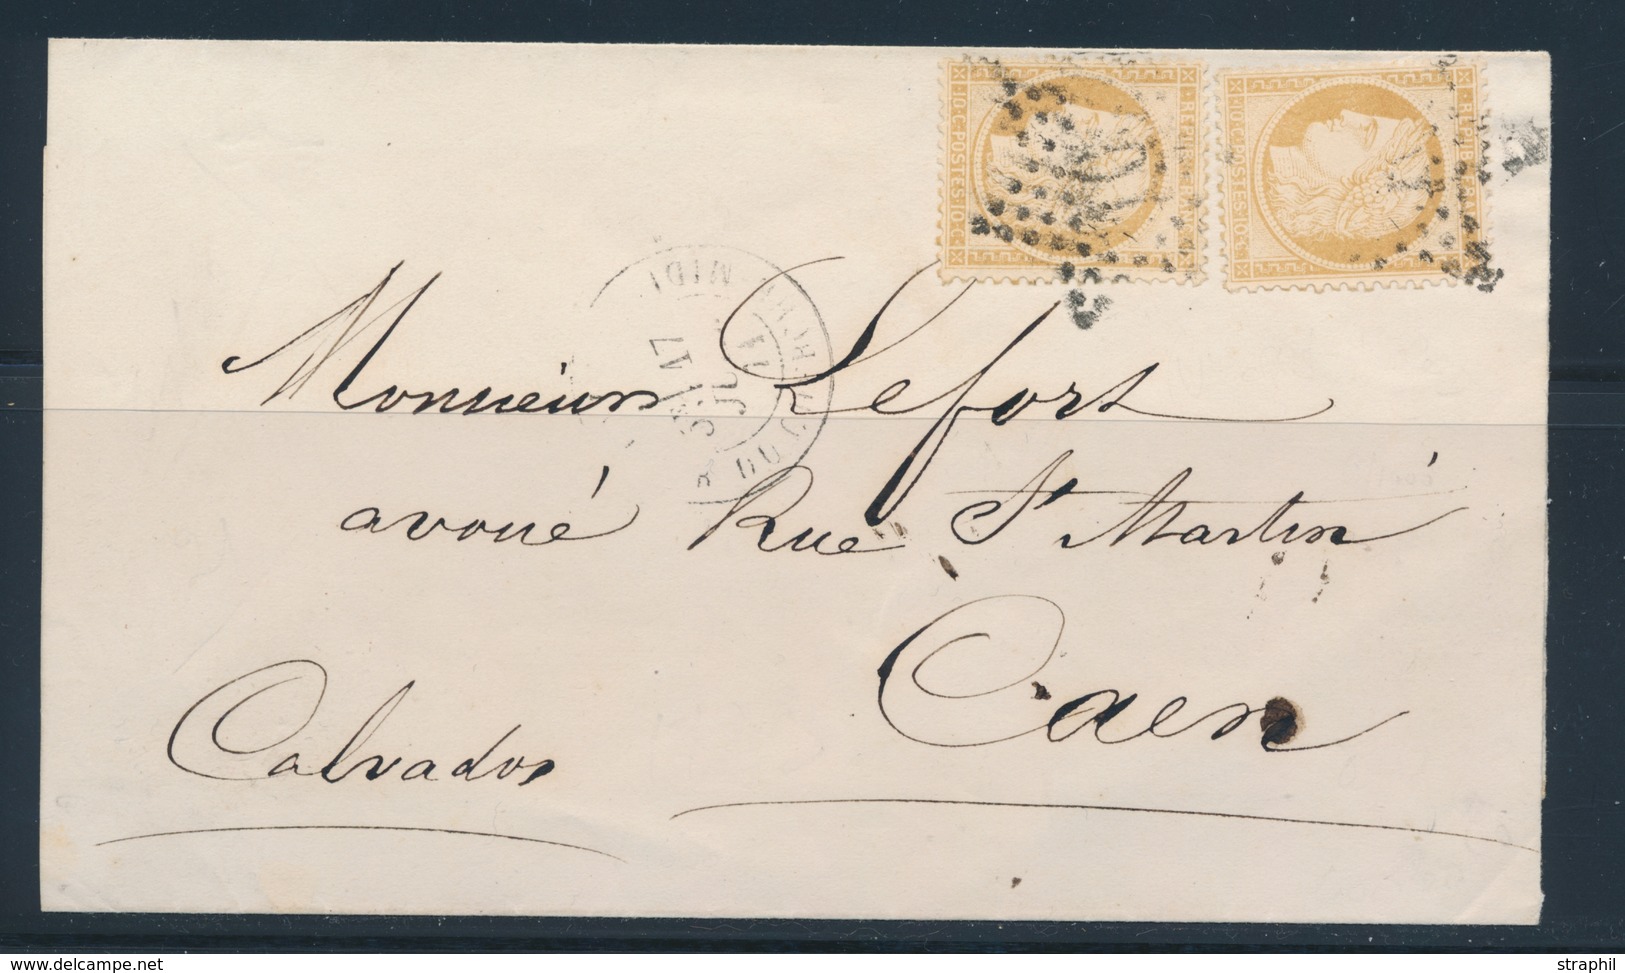 10·C·POSTES·10·C·
10·C·POSTES·10·C·
RÉPUB
MIDI
17
71
DU
Monsieur Lefort
avoué Rue St Martin
Caen
Calvados
www.delcampe.net
straphil